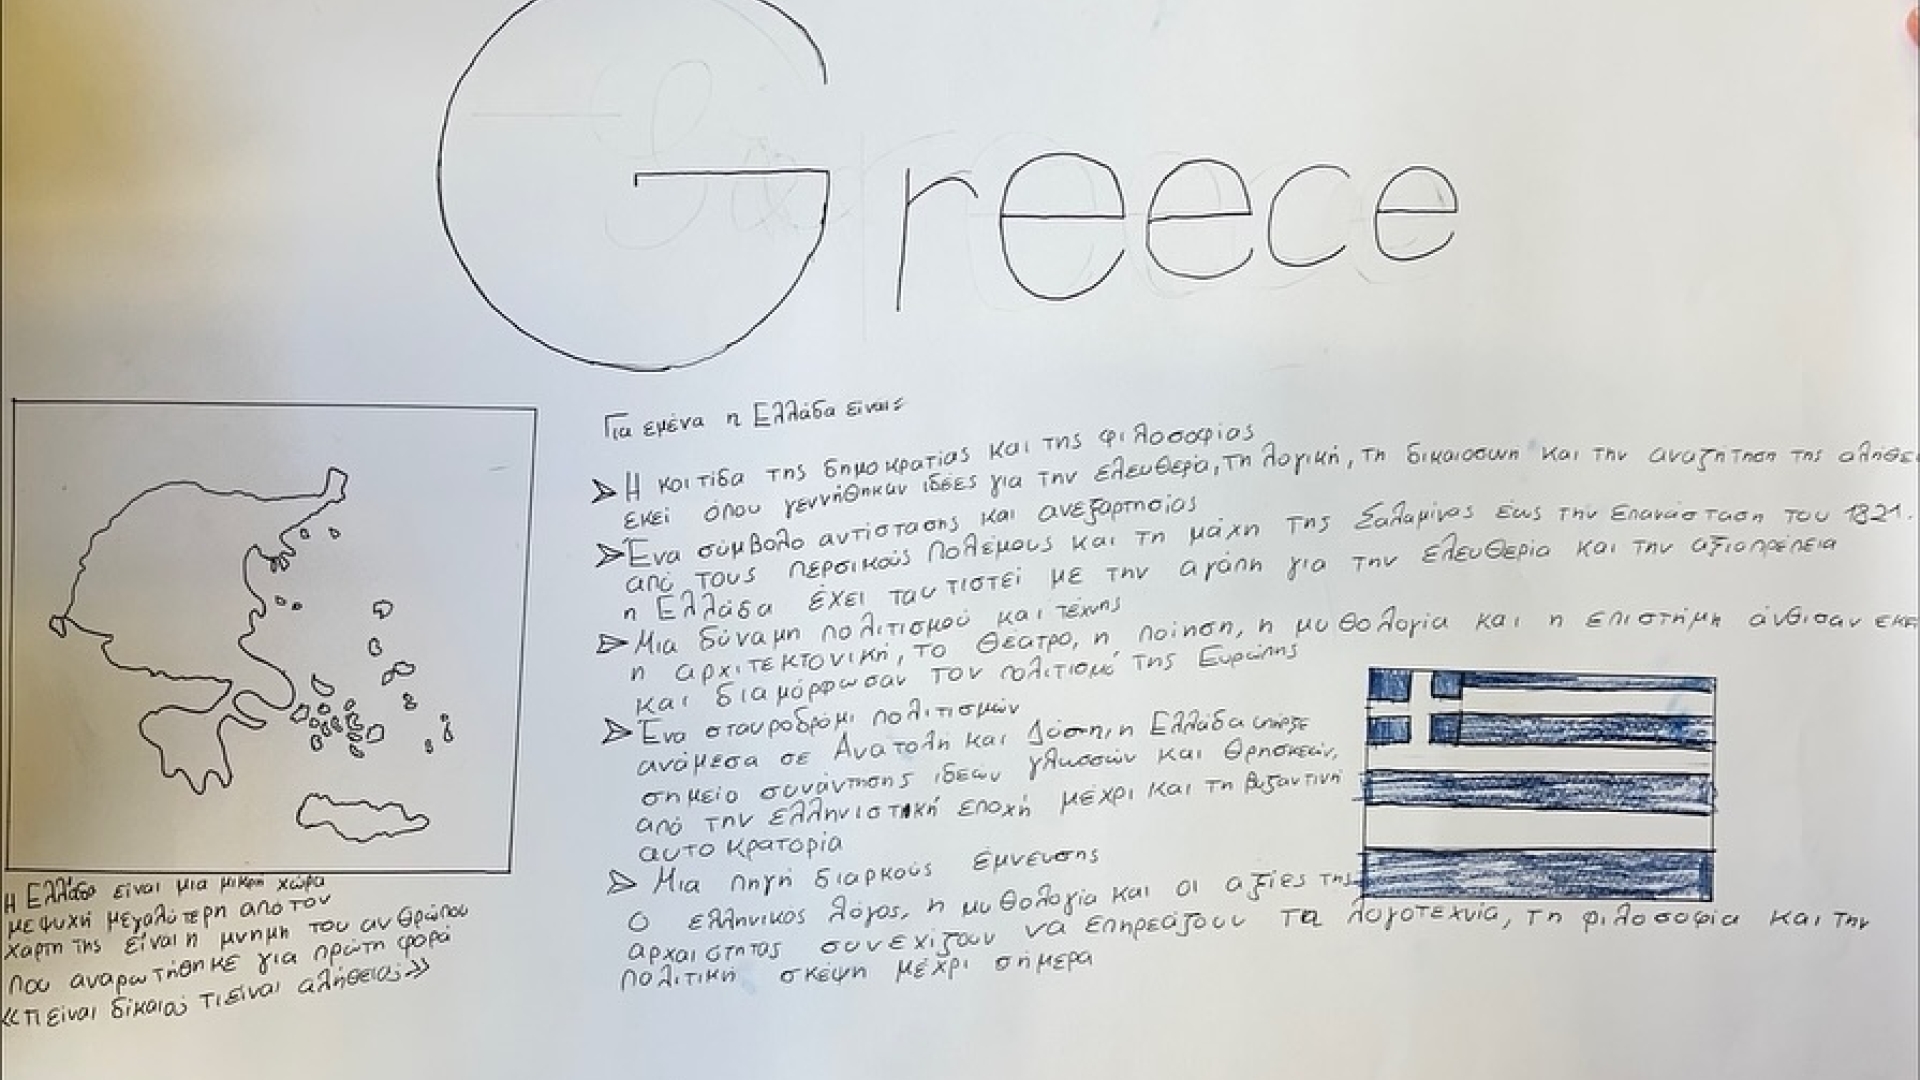 Greece
Για εμένα η Ελλάδα είναι:
Η κοιτίδα της δημοκρατίας και της φιλοσοφίας
εκεί όπου γεννήθηκαν ιδέες για την ελευθερία, τη λογική, τη δικαιοσύνη και την αναζήτηση της
Ένα σύμβολο αντίστασης και ανεξαρτησίας
από τους περσικούς πολέμους και τη μάχη της Σαλαμίνας έως την επανάσταση του 1821.
η Ελλάδα έχει ταυτιστεί με την αγάπη για την ελευθερία και την αξιοπρέπεια
Μια δύναμη πολιτισμού και τέχνης
η αρχιτεκτονική, το θέατρο, η ποίηση, η μυθολογία και η επιστήμη άνθισαν
και διαμόρφωσαν τον πολιτισμό της Ευρώπης
Ένα σταυροδρόμι πολιτισμών
ανάμεσα σε Ανατολή και Δύση, η Ελλάδα υπήρξε
σημείο συνάντησης ιδεών γλωσσών και θρησκειών,
από την ελληνιστική εποχή μέχρι και τη βυζαντινή
αυτοκρατορία
Μια πηγή διαρκούς έμνευσης
Ο ελληνικος λόγος, η μυθολογία και οι αξίες της
αρχαιότητας συνεχίζουν να επηρεάζουν τα λογοτεχνία, τη φιλοσοφία και την
πολιτική σκέψη μέχρι σήμερα
Η Ελλάδα είναι μια μικρή χώρα
με ψυχή μεγαλύτερη από τον
χαρτη της είναι η μνημη του ανθρώπου
που αναρωτήθηκε για πρώτη φορά
«Τι είναι δίκαιο; τι είναι αλήθεια;»